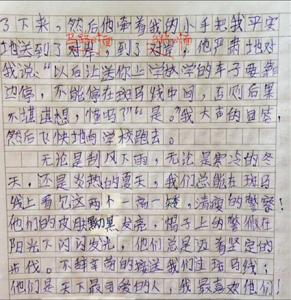 了下来，然后他牵着我的小手把我平安
马路 对面
地送到了对岸，到了对岸，他严肃地对
我说：“以后让送你上学放学的车子要靠
边停，不能停在斑马线中间，否则后果
不堪设想，懂吗？”“是。”我大声的回答，
然后飞快地向学校跑去。
无论是刮风下雨，无论是寒冷的冬
天，还是炎热的夏天，我们总能在斑马
线上看见这两个高，清瘦的警察！
他们的皮肤黝黑发亮，帽子上的警徽在
阳光下闪闪发光，他们总是迈着坚定的
步伐。不辞辛苦的接送我们过斑马线，
他们是天下最可爱的人，我最喜欢他们！